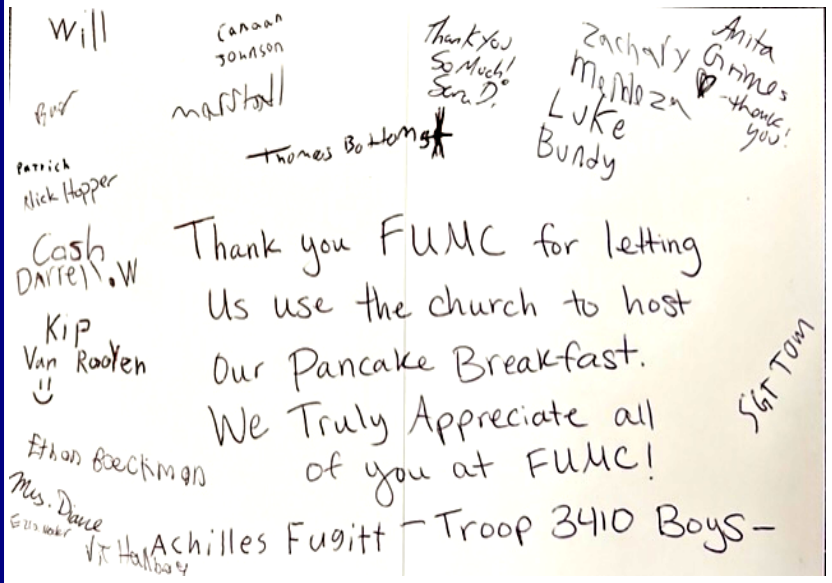 Will
Canaan
Johnson
Thank you
So Much!
Sara D.
Zachary
Mendoza
Anita
Grimes
- thank
you!
Marshall
Luke
Bundy
Thomas Bottoms
Patrick
Nick Hopper
Cash
Darrell.W
Kip
Van Rooyen
Thank you FUMC for letting
Us use the church to host
Our Pancake Breakfast.
We Truly Appreciate all
of you at FUMC!
SGT TOM
Ethan Boeckman
Mrs. Diane
Achilles Fugitt
- Troop 3410 Boys -